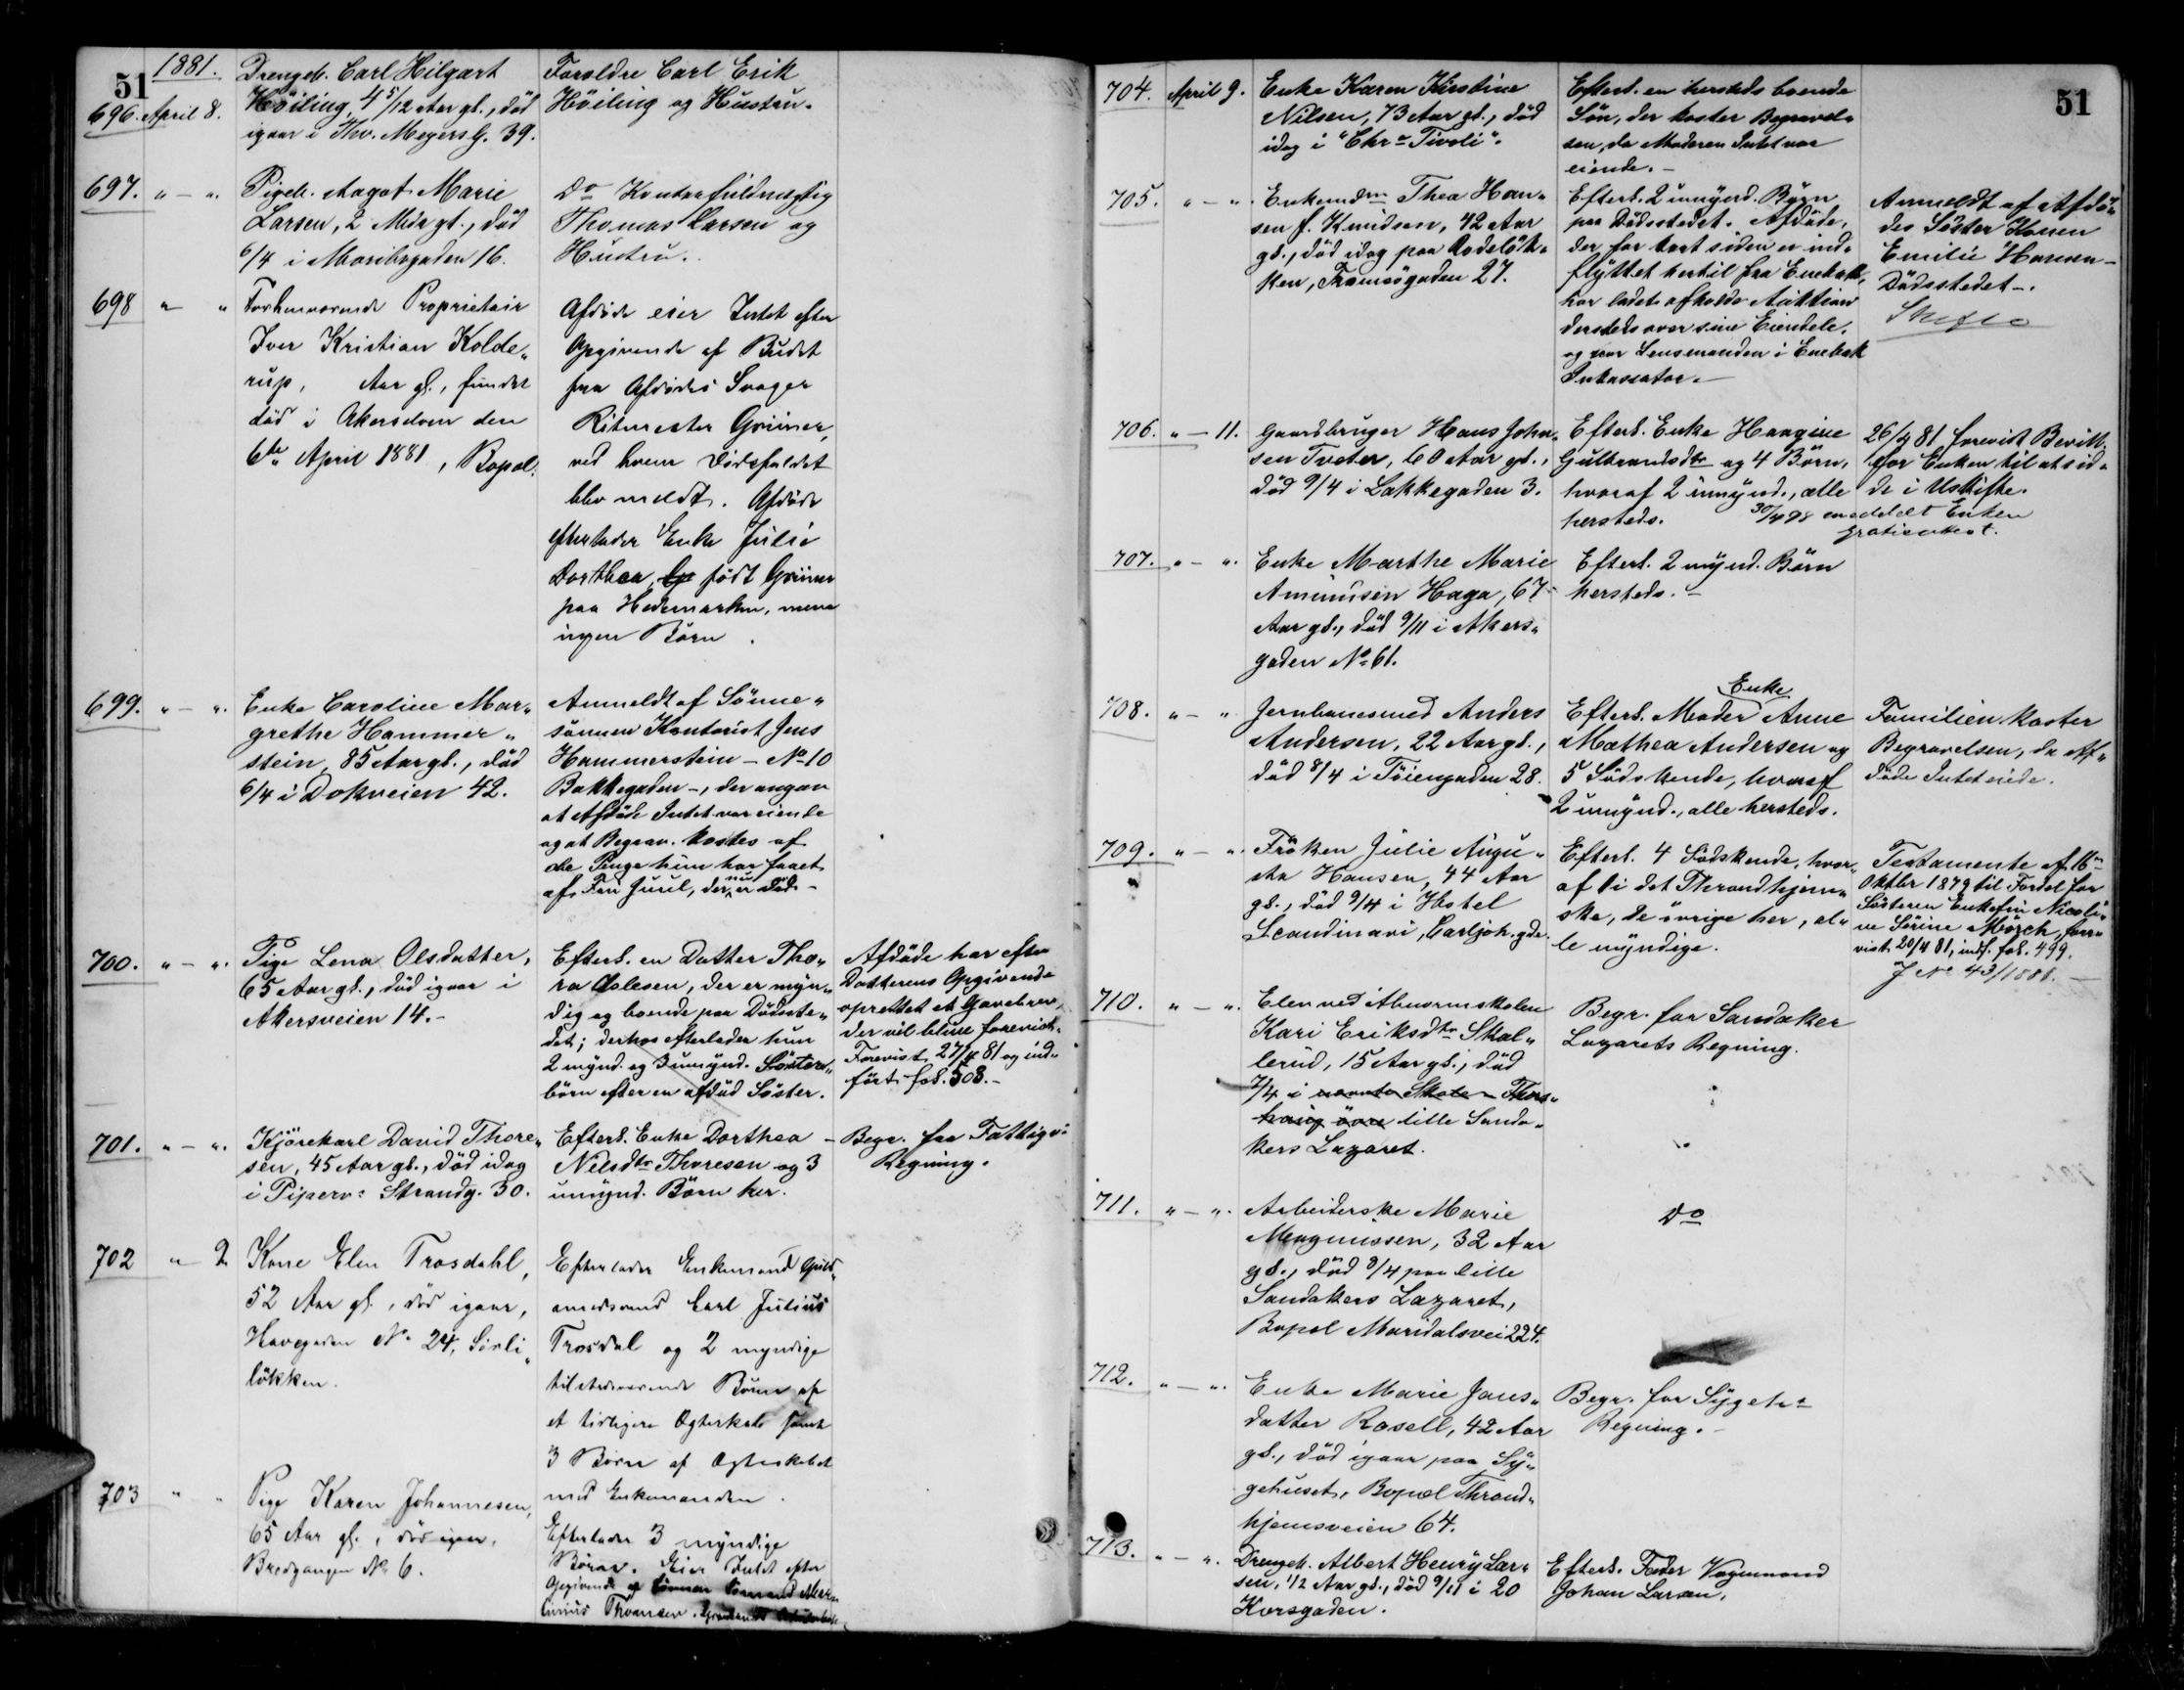 51
1881.
696. April 8.
Drengeb. Carl Hilgart
Höiling, 4 5/12 Aar gl., död
igaar i Thv. Meyers G. 39.
Foreldre Carl Erik
Höiling og Hustru.
697. " — ".
Pigeb. Aagot Marie
Larsen, 2 Mdr gl., död
6/4 i Maribogaden 16.
Do Kontorfuldmægtig
Thomas Larsen og
Hustru.
698 " "
Forhenværende Proprietair
Iver Kristian Kolde„
rup, Aar gl., fundet
död i Akerselven den
6te April 1881, Bopæl:
Afdöde eier Intet efter
Opgivende af Budet
fra Afdödes Svoger
Ritmester Grüner,
ved hvem Dödsfaldet
blev meldt. Afdöde
efterlader Enke Julie
Dorthea, født Grüner
paa Hedemarken, men
ingen Börn.
699. " — ".
Enke Caroline Mar„
grethe Hammer„
stein, 85 Aar gl., död
6/4 i Dokveien 42.
Anmeldt af Sönne„
sönnen Kontorist Jens
Hammerstein – No 10
Bakkegaden –, der angav
at Afdöde Intet var eiende
og at Begrav. kostes af
de Penge hun har faaet
af Fru Juul, der nu er död –
700. " — ".
Pige Lena Olsdatter,
65 Aar gl., död igaar i
Akersveien 14. –
Efterl. en Datter Tho„
ra Oslesen, der er myn„
dig og boende paa Dödsste„
det; derhos efterlader hun
2 mynd. og 3 umynd. Söster„
börn efter en afdöd Söster.
Afdöde har efter
Datterens Opgivende
oprettet et Gavebrev,
der vil blive forevist.
Forevist 27/4 81 og ind„
fört fol. 508. –
701. " — ".
Kjörekarl David Thore„
sen, 45 Aar gl., död idag
i Piperv: Strandg. 30.
Efterl. Enke Dorthea
Nilsdtr Thoresen og 3
umynd. Börn her.
Begr. for Fattigv:
Regning.
702 " — 2
Kone Elen Trosdahl,
52 Aar gl., död igaar,
Havegaden No 24, Sörli„
lökken.
Efterlader Enkemand Guld„
smedsvend Carl Julius
Trosdal og 2 myndige
tilstedeværende Börn af
et tidligere Ægteskab samt
3 Börn af Ægteskabet
med Enkemanden.
703 " "
Pige Karen Johannesen,
65 Aar gl., död igaar,
Bredgangen No 6.
Efterlader 3 myndige
Börn. Eier Intet efter
Opgivende af Sönnen
Thomsen.
51
704. April 9.
Enke Karen Kirstine
Nilsen, 73 Aar gl., död
idag i "Chr. Tivoli".
Efterl. en hersteds boende
Sön, der koster Begravel„
sen, da Moderen Intet var
eiende. –
705. " — ".
Enkemdm Thea Han„
sen f. Knudsen, 42 Aar
gl., död idag paa Rodelök„
ken, Tromsögaden 27.
Efterl. 2 umynd. Börn
paa Dödsstedet. Afdöde,
der for kort siden er ind„
flyttet hertil fra Enebak,
har ladet afholde Auktion
dersteds over sine Eiendele,
og var Lensmanden i Enebak
Inkassator. –
Anmeldt af Afdö„
des Söster Konen
Emilie Hansen –
Dödsstedet –.
706. " — 11.
Gaardbruger Hans Johan„
sen Tveter, 60 Aar gl.,
död 9/4 i Lakkegaden 3.
Efterl. Enke Haagine
Gulbrandsdtr og 4 Börn,
hvoraf 2 umynd., alle
hersteds.
26/4 81 forevist Bevill.
for Enken til at sid„
de i Uskifte.
30/4 98 meddelt Enken
707. " — ".
Enke Marthe Marie
Amundsen Haga, 67
Aar gl., död 9/11 i Akers„
gaden No 61.
Efterl. 2 mynd. Börn
hersteds. –
708. " — ".
Jernbanesmed Anders
Andersen, 22 Aar gl.,
död 8/4 i Töiengaden 28.
Efterl. Moder Enke Anne
Mathea Andersen og
5 Södskende, hvoraf
2 umynd., alle hersteds.
Familien koster
Begravelsen, da Af„
döde Intet eiede.
709. " — ".
Fröken Julie Augu„
sta Hansen, 44 Aar
gl., död 9/4 i Hotel
Scandinavi, Carljoh. gde.
Efterl. 4 Södskende, hvor„
af 1 i det Throndhjem„
ske, de övrige her, al„
le myndige.
Testamente af 16de
Oktbr 1879 til Fordel for
Sösteren Enkefru Nicoli„
ne Serine Mörch, fore„
vist 20/4 81, indf. fol. 499.
J No 43/1881. –
710. " — ".
Elev ved Abnormskolen
Kari Eriksdtr Skol„
lerud, 15 Aar gl., död
7/4 i nævnte Skole – Thors„
haug övre lille Sanda„
kers Lazaret.
Begr. for Sandaker
Lazarets Regning.
711. " — ".
Arbeiderske Marie
Magnussen, 32 Aar
gl., död 8/4 paa lille
Sandakers Lazaret,
Bopæl Maridalsvei 224.
Do
712. " — ".
Enke Marie Jans„
datter Rosell, 42 Aar
gl., död igaar paa Sy„
gehuset, Bopæl Thrond„
hjemsveien 64.
Begr. for Sygeh:
Regning. –
713. " — ".
Drengeb. Albert Henry Lar„
sen, 1/2 Aar gl., död 9/11 i 20
Korsgaden.
Efterl. Fader Vognmand
Johan Larsen.